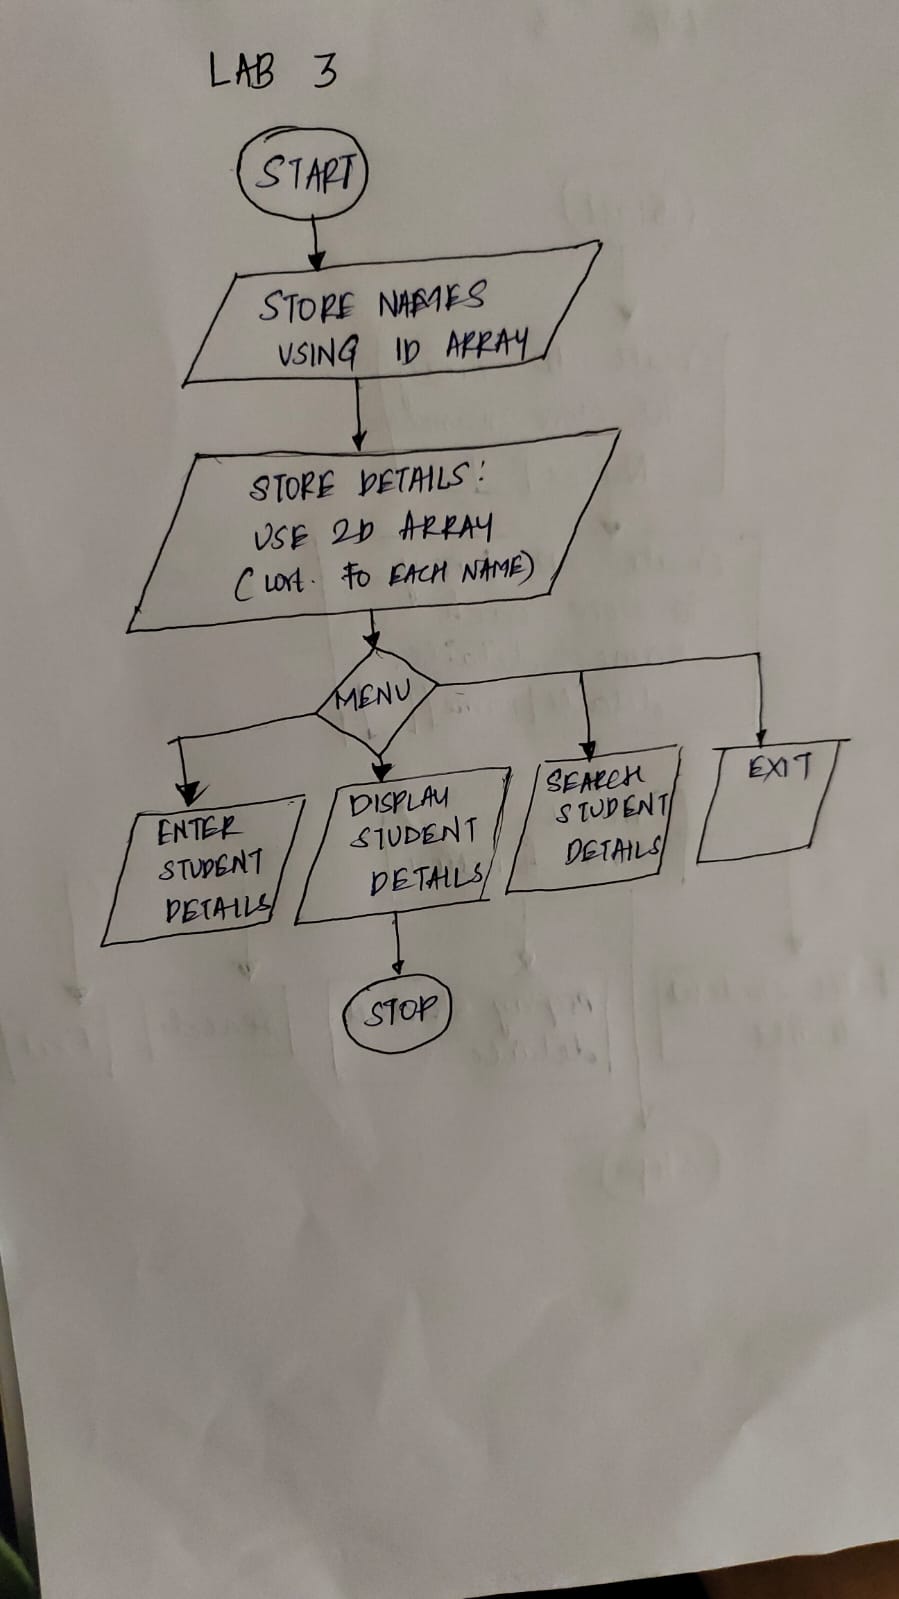 LAB 3
START
STORE NAMES
USING 1D ARRAY
STORE DETAILS:
USE 2D ARRAY
( to EACH NAME)
MENU
ENTER
STUDENT
DETAILS
DISPLAY
STUDENT
DETAILS
SEARCH
STUDENT
DETAILS
EXIT
STOP